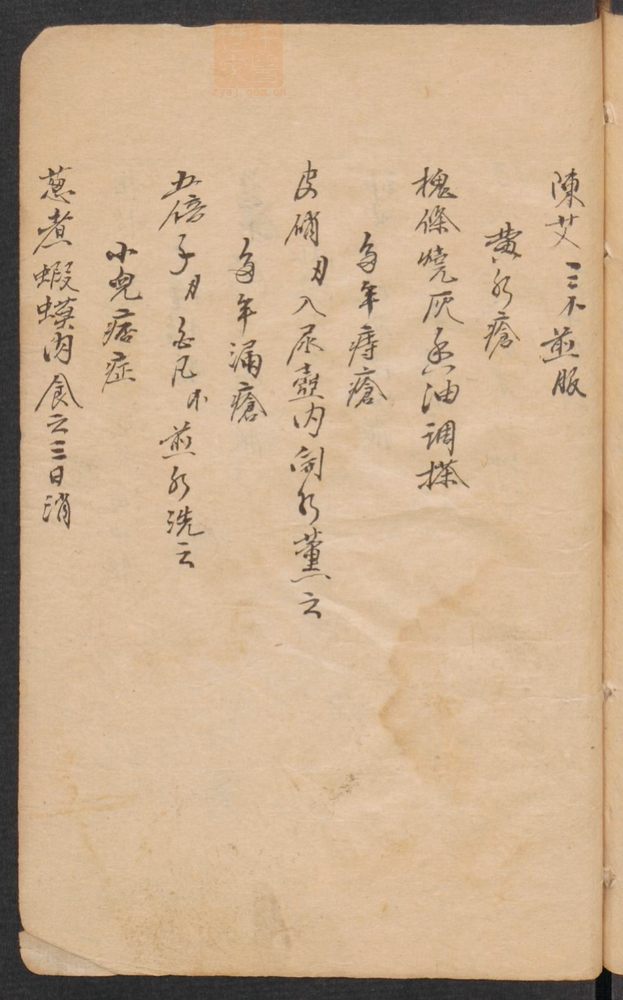 陳艾二三不煎服
黄水瘡
槐條燒灰香油調搽
多年痔瘡
皮硝 入尿壺内向水薰之
多年漏瘡
五倍子 白凡 煎水洗之
小兒痞症
葱煮蝦蟆肉食之三日消